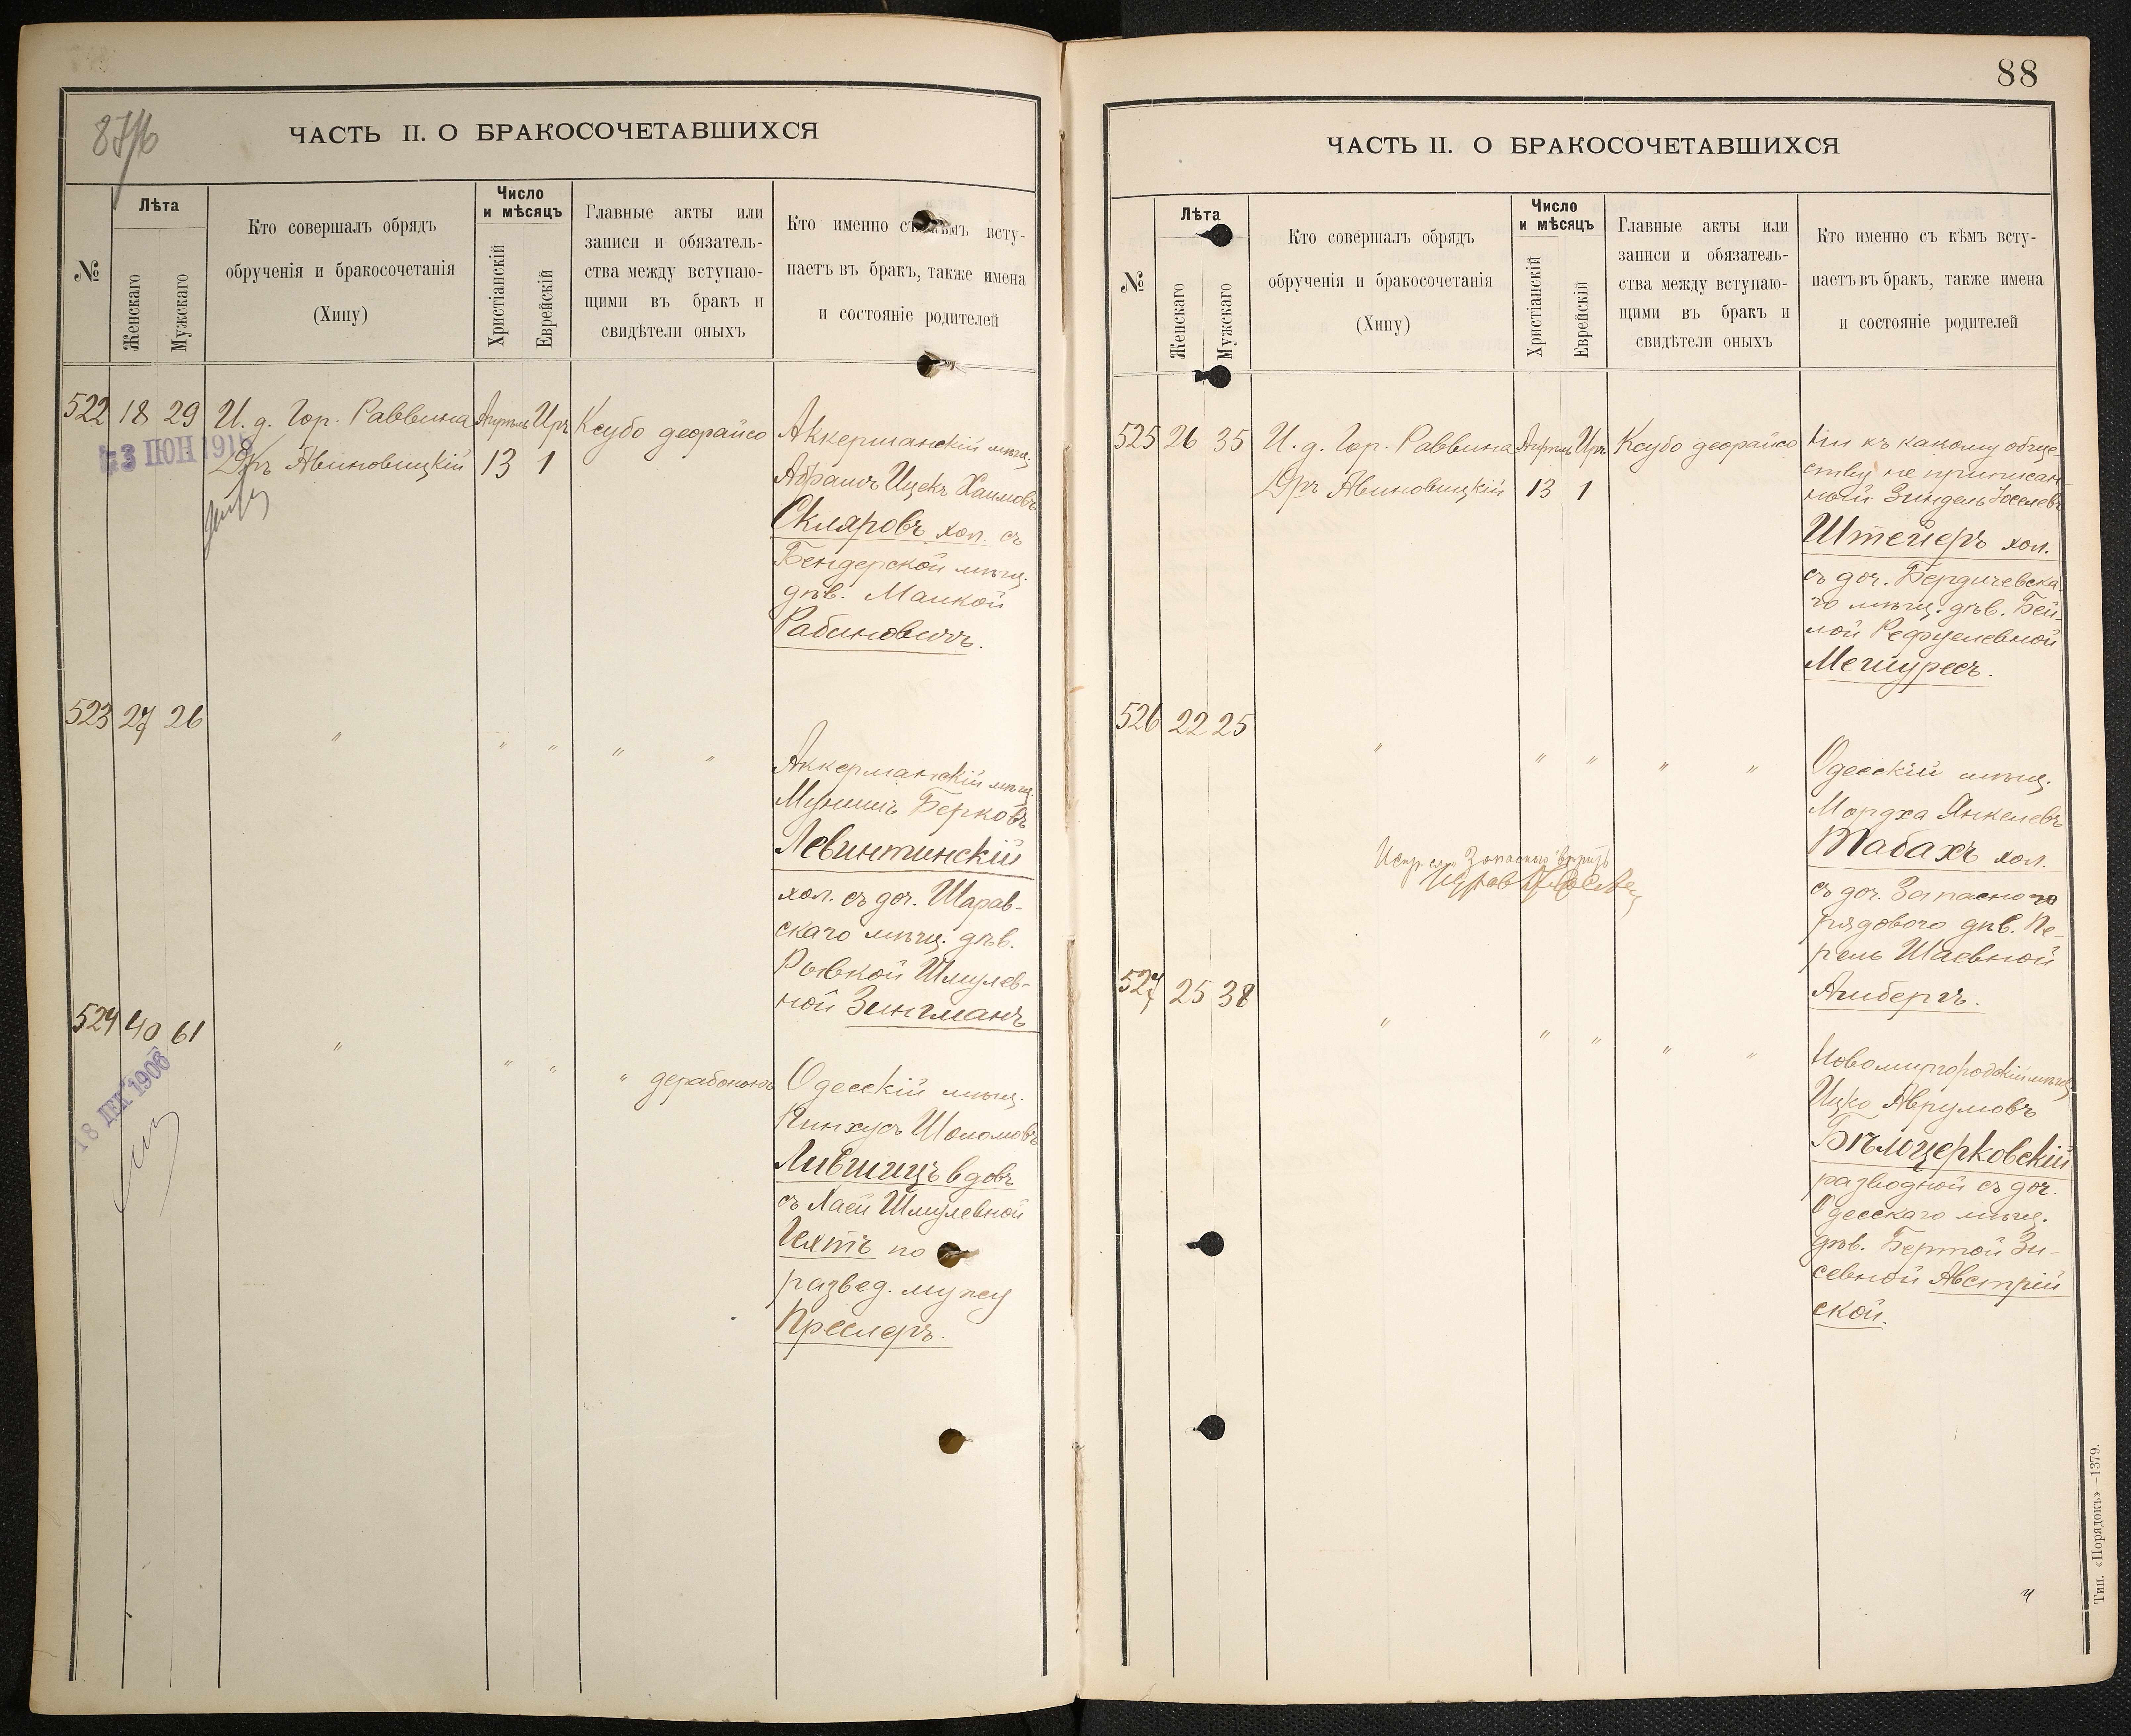 ЧАСТЬ II. О БРАКОСОЧЕТАВШИХСЯ
№
Лѣта
Женскаго
Мужскаго
Кто совершалъ обрядъ
обрученія и бракосочетанія
(Хипу)
Число
и мѣсяцъ
Христіанскій
Еврейскій
Главные акты или
записи и обязатель-
ства между вступаю-
щими въ бракъ и
свидѣтели оныхъ
Кто именно съ кѣмъ всту-
паетъ въ бракъ, также имена
и состояніе родителей
522 18 29 И. д. Гор. Раввина Апрѣль Иръ Ксубо деорайсо
Д-ръ Авиновицкій 13 1
Аккерманскій мѣщ.
Абрамъ Ицекъ Хаимовъ
Скляровъ хол. съ
Бендерской мѣщ.
дѣв. Малкой
Рабиновичъ.
523 27 26 " " " " "
Аккерманскій мѣщ.
Мунишъ Берковъ
Левинтинскій
хол. съ доч. Шарав-
скаго мѣщ. дѣв.
Рывкой Шмулев-
ной Зингманъ
524 40 61 " " " " дерабононъ
18 ДЕК 1906
Одесскій мѣщ.
Пинхусъ Шоломовъ
Лившицъ вдовъ
съ Хаей Шмулевной
Гехтъ по
развед. мужу
Преслеръ.
88
ЧАСТЬ II. О БРАКОСОЧЕТАВШИХСЯ
№
Лѣта
Женскаго
Мужскаго
Кто совершалъ обрядъ
обрученія и бракосочетанія
(Хипу)
Число
и мѣсяцъ
Христіанскій
Еврейскій
Главные акты или
записи и обязатель-
ства между вступаю-
щими въ бракъ и
свидѣтели оныхъ
Кто именно съ кѣмъ всту-
паетъ въ бракъ, также имена
и состояніе родителей
525 26 35 И. д. Гор. Раввина Апрѣль Иръ Ксубо деорайсо
Д-ръ Авиновицкій 13 1
Ни къ какому обще-
ству не приписан-
ный Зиндель Іоселевъ
Штейеръ хол.
съ доч. Бердичевска-
го мѣщ. дѣв. Бей-
лой Рефуелевной
Мешуресъ.
526 22 25 " " " " "
Одесскій мѣщ.
Мордха Янкелевъ
Табахъ хол.
съ доч. Запасного
рядового дѣв. Пе-
рель Шаевной
Амбергъ.
527 25 38 " " " " "
Новомиргородскій мѣщ.
Ицко Аврумовъ
Бѣлоцерковскій
разводной съ доч.
Одесскаго мѣщ.
дѣв. Бертой Зи-
севной Австрій
ской.
Тип. «Порядокъ»—1379.